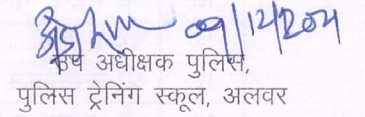 09/12/2021
उप अधीक्षक पुलिस,
पुलिस ट्रेनिंग स्कूल, अलवर